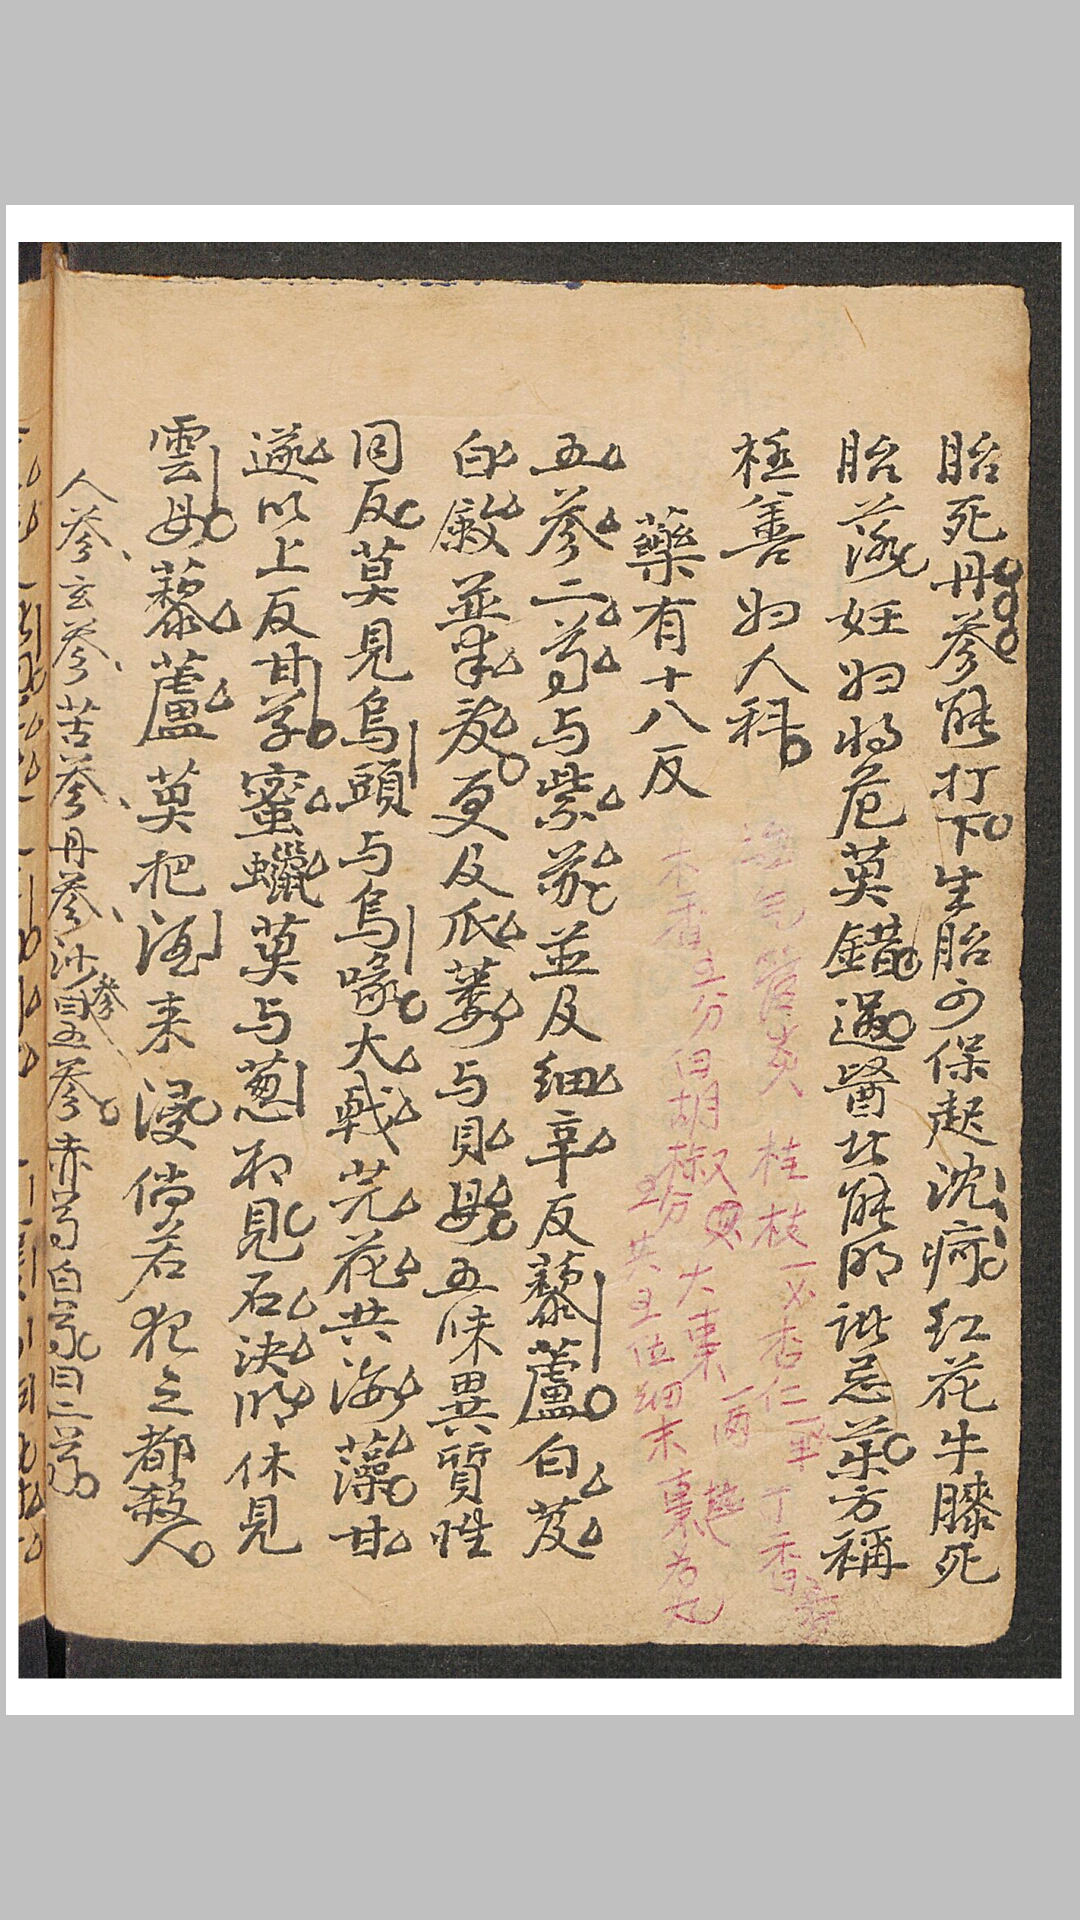 胎死丹參能打下生胎可保起沈疴红花牛膝死
胎落妊妇将危莫錯過醫能明訛忌薬方稱
極善妇人科
气管炎 桂枝一 杏仁 丁香
藥有十八反
木香五分白胡椒 大棗
五分共五位细末棗为丸
五參二芍与紫並及细辛反藜蘆白芨
白蘞並半夏更及瓜蒌与貝母五味異質性
同反莫見烏頭与烏喙大戟芫花共海藻甘
遂以上反甘草蜜蠟莫与葱相見石決明休見
雲母藜蘆莫把酒来浸倘若犯之都殺人
人參玄參苦參丹參沙參曰五參赤芍白芍曰二芍